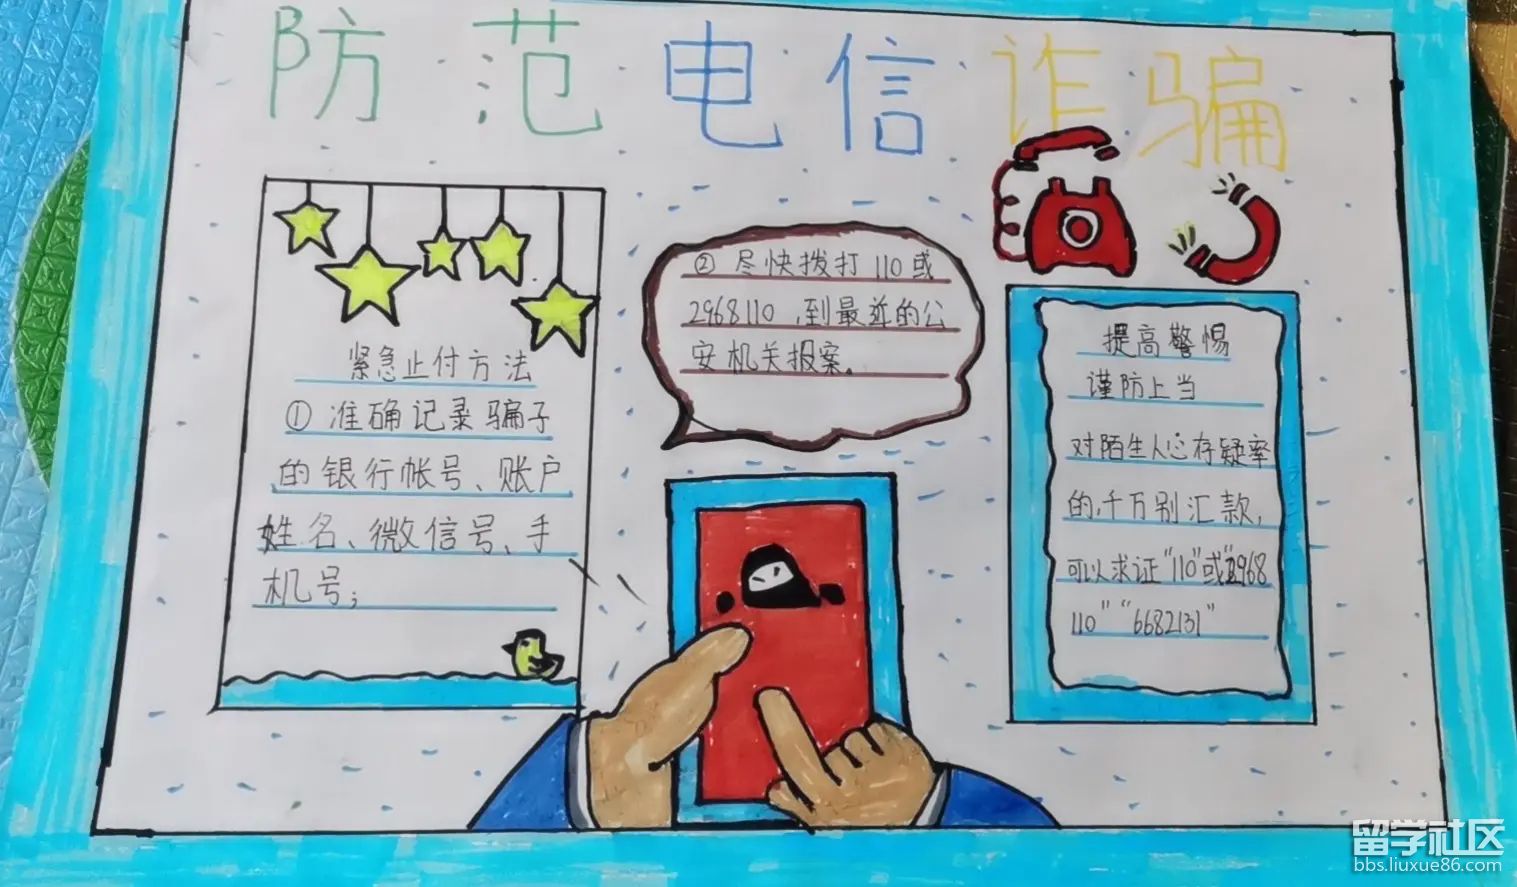 防范电信诈骗
紧急止付方法
①准确记录骗子
的银行帐号、账户
姓名、微信号、手
机号;
②尽快拨打110或
2968110,到最近的公
安机关报案。
提高警惕
谨防上当
对陌生人心存疑率
的,千万别汇款,
可以求证"110"或"2968
110""6682131"
留学社区
bbs.liuxue86.com